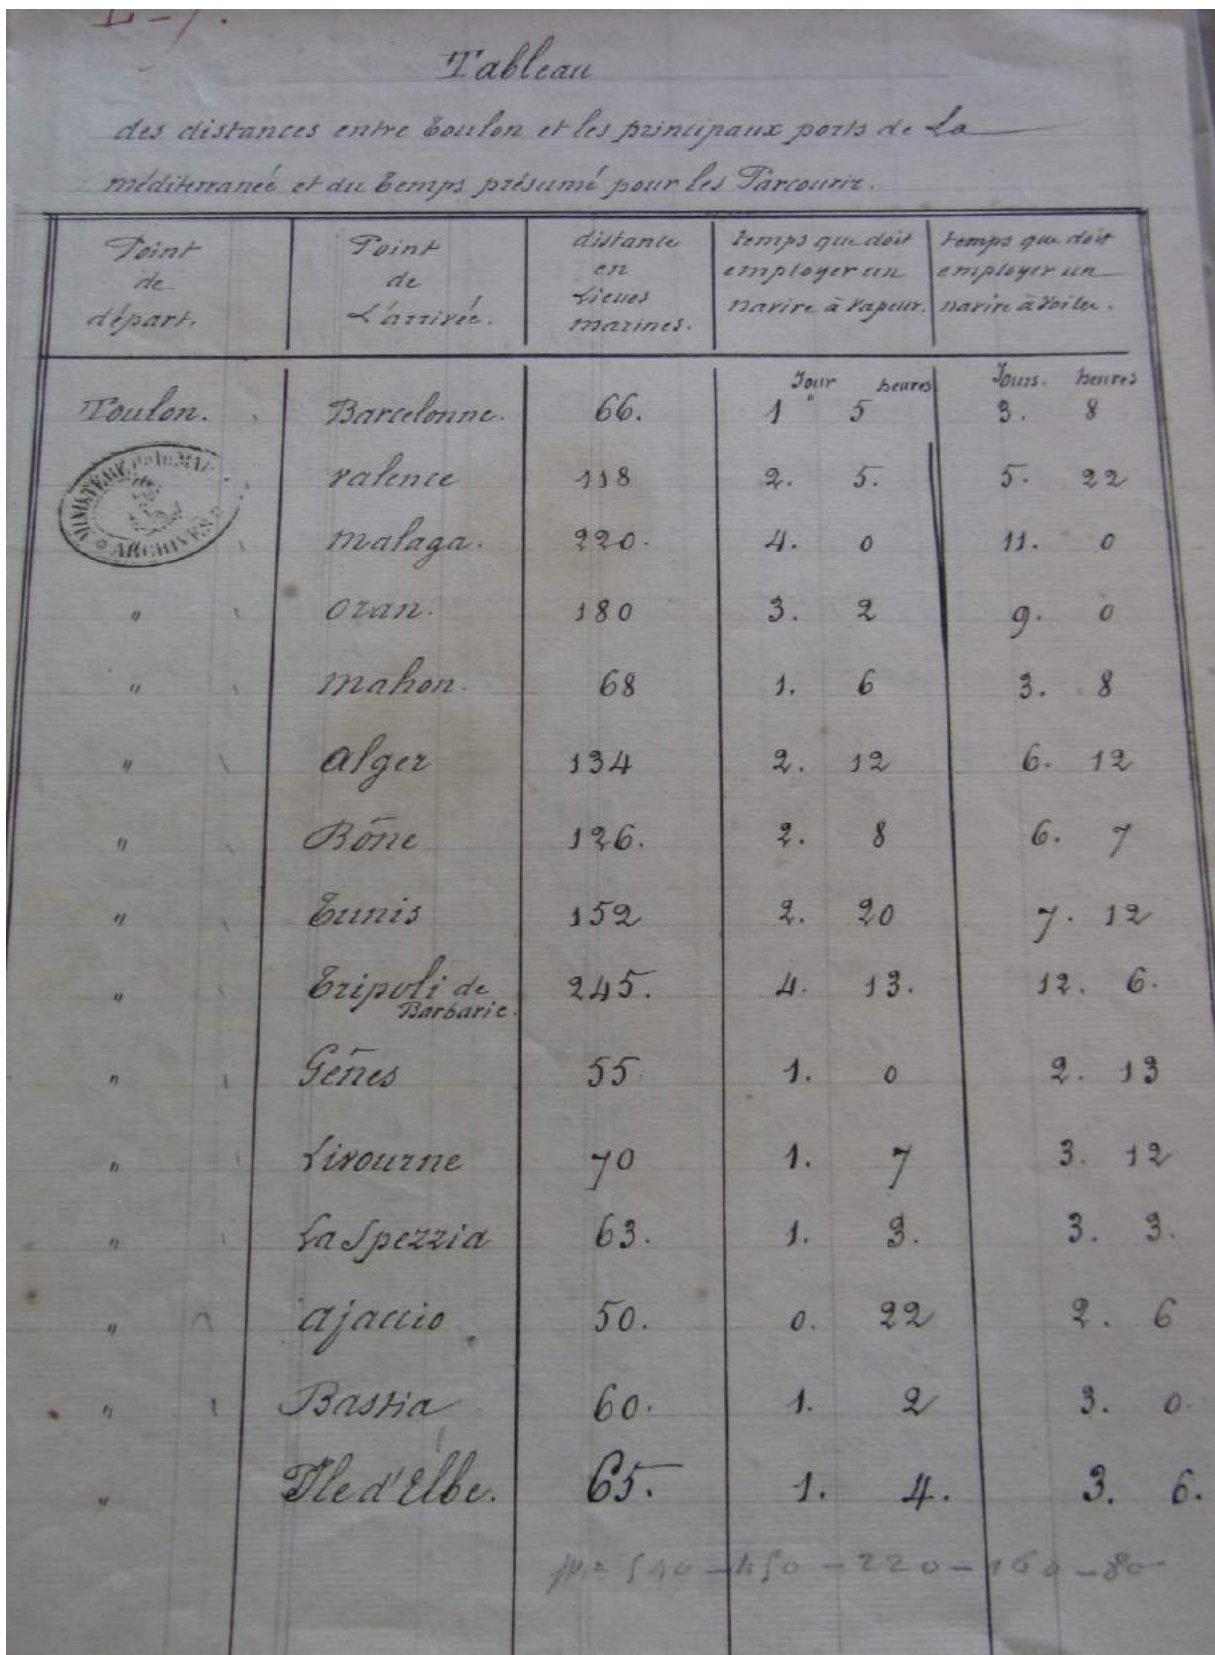 Tableau
des distances entre Toulon et les principaux ports de La
méditerranée et du Temps présumé pour les Parcourir.
Point de départ. Point de L'arrivée. distance en Lieues marines. temps que doit employer un navire à vapeur. temps que doit employer un navire à voiles.
Jour heures Jours. heures
Toulon. Barcelonne. 66. 1 5 3. 8
MINISTÈRE DE LA MAR
ARCHIVES
valence 118 2. 5. 5. 22
malaga. 220. 4. 0 11. 0
" oran. 180 3. 2 9. 0
" mahon. 68 1. 6 3. 8
" alger 134 2. 12 6. 12
" Bône 126. 2. 8 6. 7
" Tunis 152 2. 20 7. 12
" Tripoli de Barbarie. 245. 4. 13. 12. 6.
" Gênes 55 1. 0 2. 13
" Livourne 70 1. 7 3. 12
" La Spezzia 63. 1. 3. 3. 3.
" ajaccio 50. 0. 22 2. 6
" Bastia 60. 1. 2 3. 0.
" Ile d'Elbe. 65. 1. 4. 3. 6.
540 - 450 - 220 - 160 - 80